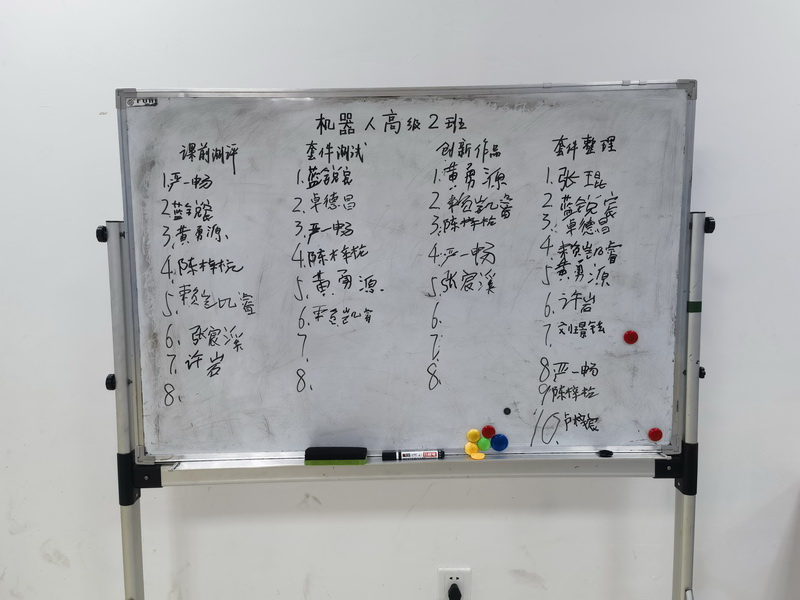 机器人高级2班
课前测评
1.严一畅
2.蓝锐宸
3.黄勇源.
4.陈梓杭
5.赖凯睿
6.张宸溪
7.许岩
8.
套件测试
1.蓝锐宸
2.卓德昌
3.严一畅
4.陈梓杭
5.黄勇源.
6.赖凯睿
7.
8.
创新作品
1.黄勇源
2.赖凯睿
3.陈梓杭
4.严一畅
5.张宸溪
6.
7.
8.
套件整理
1.张琨
2.蓝锐宸
3.卓德昌
4.赖凯睿
5.黄勇源
6.许岩
7.
8.严一畅
9.陈梓杭
10.